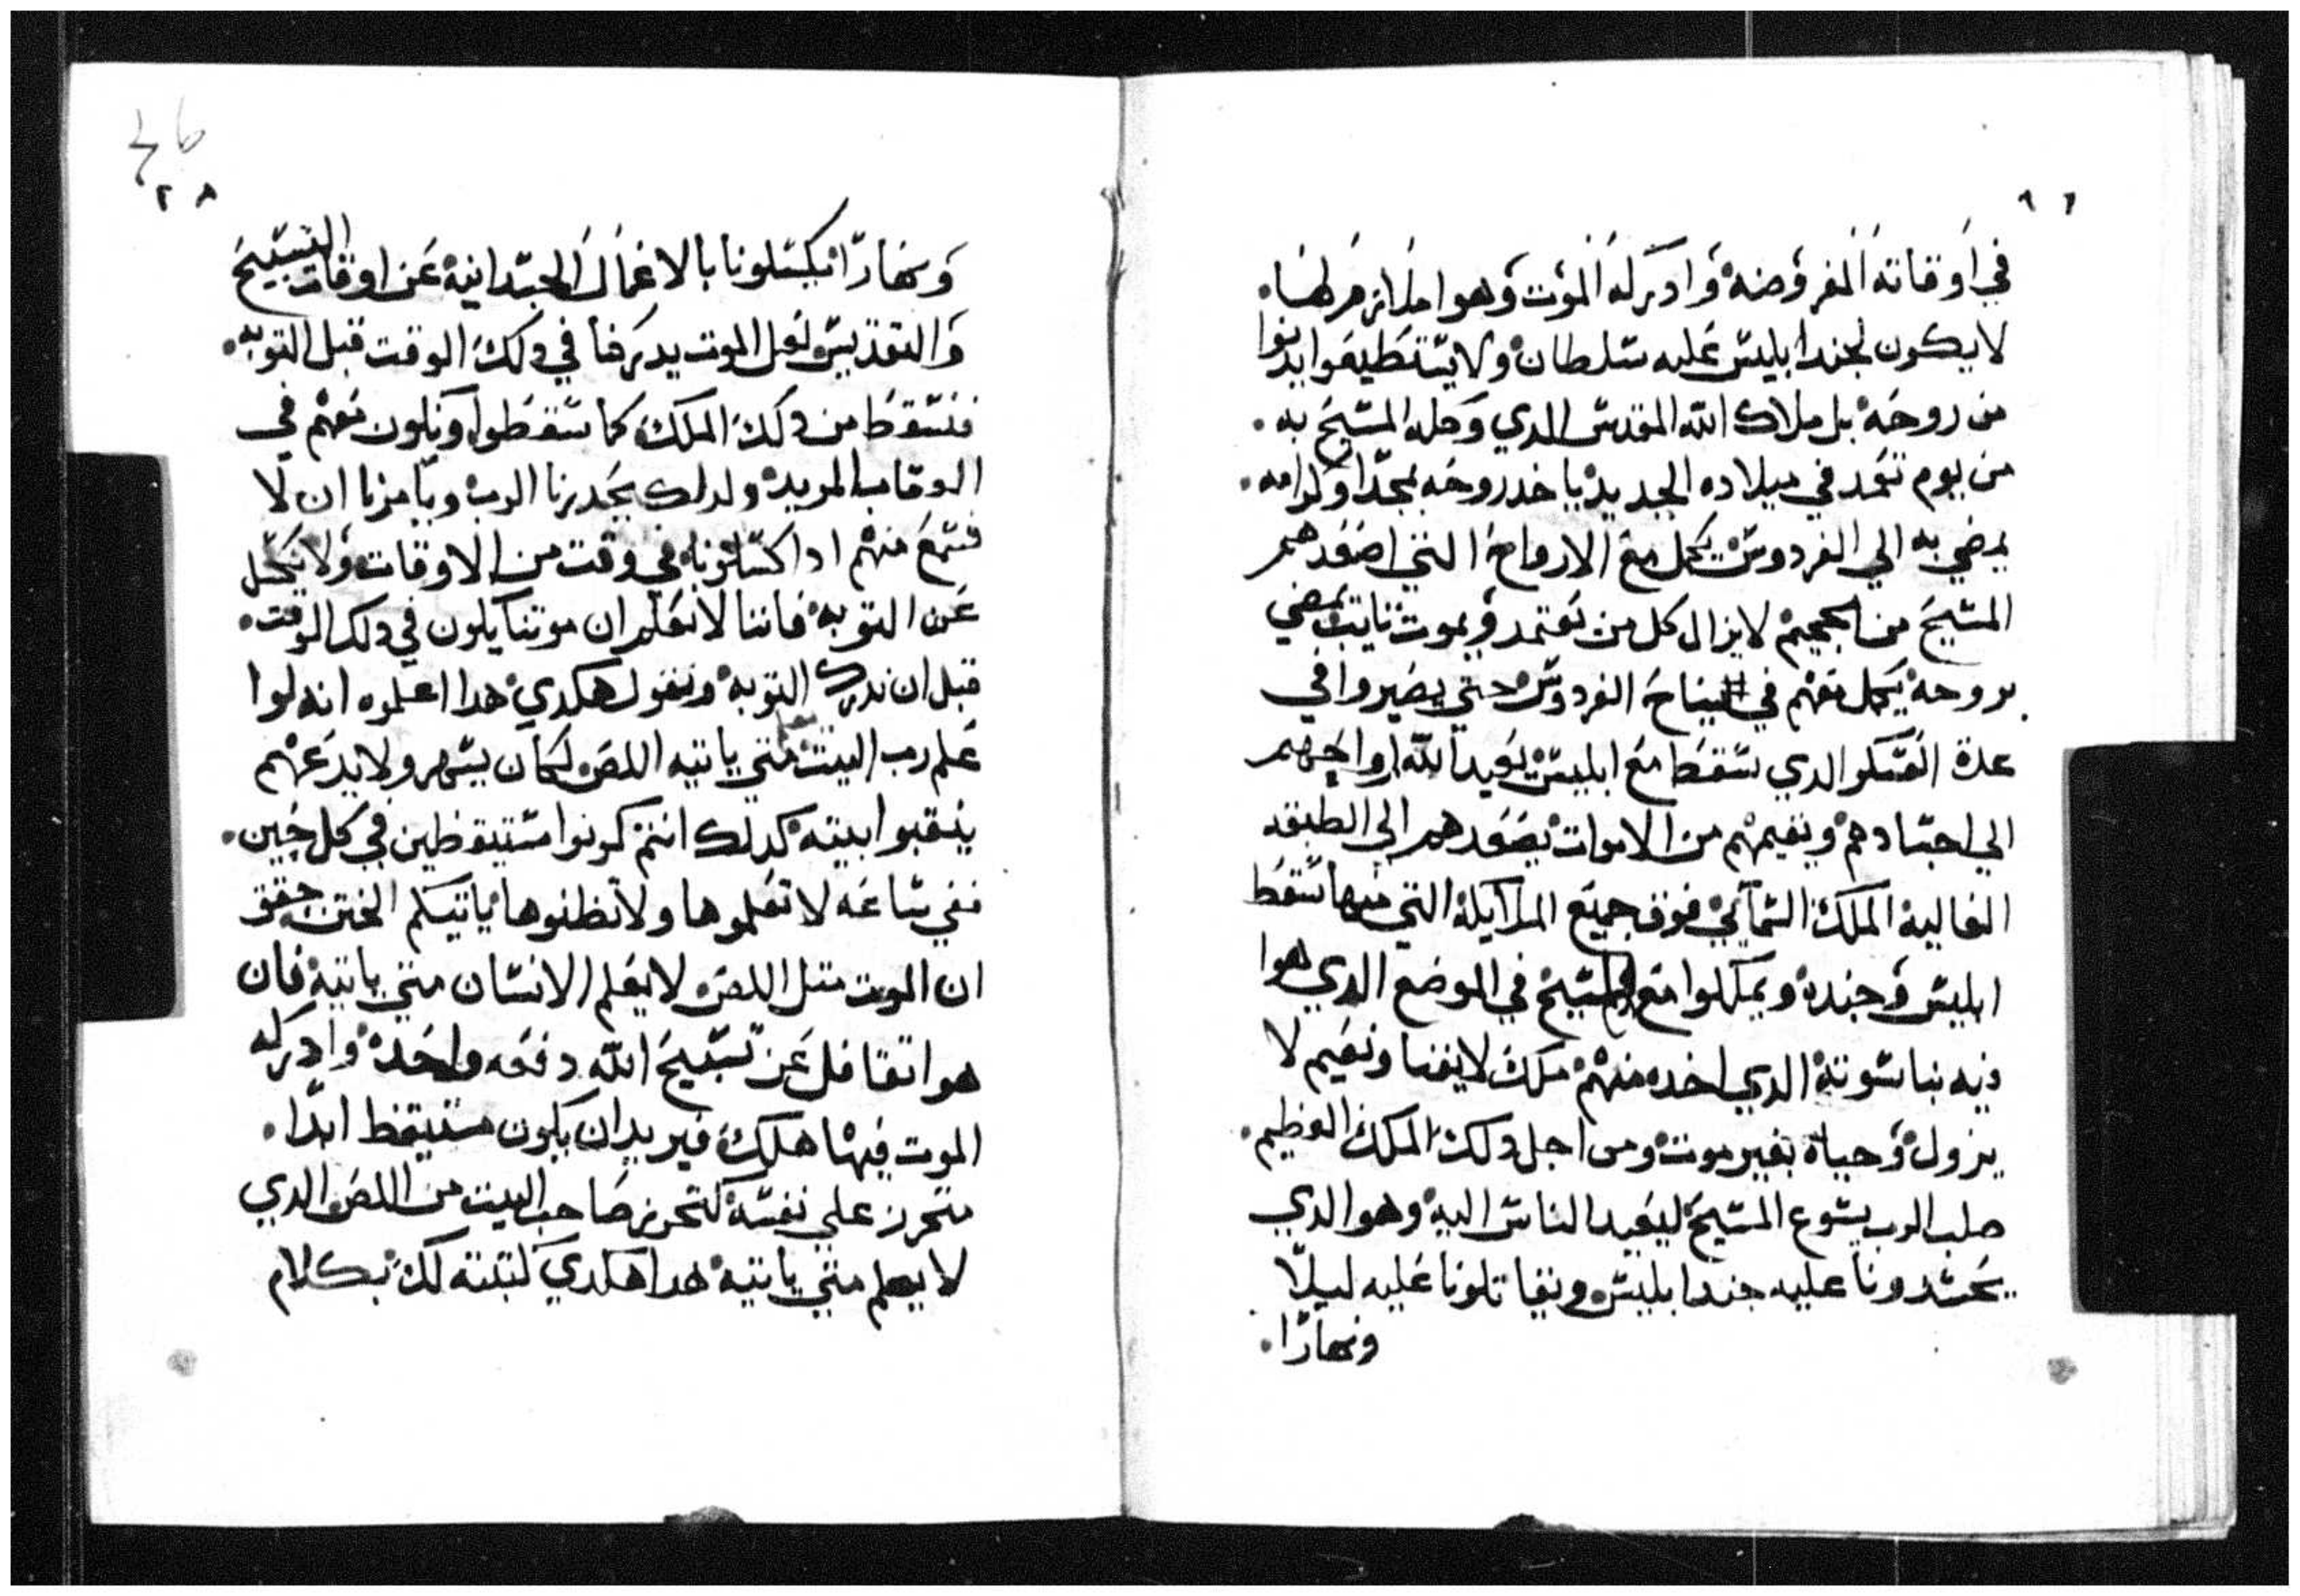 ٦ ٩
في اوقاته المفروضه وادركه الموت وهوا ملازم لها.
لا يكون لجند ابليس عليه سلطان ولا يستطيعوا يدنوا
من روحه بل ملاك الله المقدس الدي وكله المسيح به.
من يوم تعمد في ميلاده الجديد ياخد روحه بمجدا وكرامه.
يمضي به الي الفردوس يكمل مع الارواح التني اصعدهم
المسيح من الجحيم لا يزال كل من يعتمد ويموت تايب يمضي
بروحه يكمل معهم في نياح الفردوس حتي يصيروا في
عدة العسكر الدي سقط مع ابليس يعيد الله ارواحهم
الي اجسادهم ويقيمهم من الاموات يصعدهم الي الطبقه
العاليه الملك السمآئي فوق جميع الملايكه التي منها سقط
ابليس وجنده ويملكوا مع المسيح في الموضع الدي هوا
فيه بناسوته الدي اخده منهم ملك لا يفنا ونعيم لا
يزول وحياة بغير موت ومن اجل دلك الملك العظيم.
صلب الرب يسوع المسيح ليعيد الناس اليه وهو الدي
يحسدونا عليه جند ابليس ويقاتلونا عليه ليلا
ونهارا.
46
٢ ٨
ونهارا يكسلونا بالاعمال الجسدانيه عن اوقات التسبيح
والتقديس لعل الموت يدركنا في دلك الوقت قبل التوبه.
فنسقط من دلك الملك كما سقطوا ونكون معهم في
العقاب المريد ولدلك يحدرنا الرب ويامرنا ان لا
نسمع منهم ادا كسلونا في وقت من الاوقات ولا نكسل
عن التوبه فاننا لا نعلم ان موتنا يكون في دلك الوقت.
قبل ان ندرك التوبه ونقول هكدي هدا اعلموه انه لوا
علم رب البيت متي ياتيه اللص لكان يسهر ولا يدعهم
ينقبوا بيته كدلك انتم كونوا مستيقظين في كل حين.
ففي ساعه لا تعلموها ولا تظنوها ياتيكم الختن حقق
ان الموت متل اللص لا يعلم الانسان متي ياتيه فان
هوا تغافل عن تسبيح الله دفعه واحده وادركه
الموت فيها هلك فيريد ان يكون مستيقظ ابدا.
متحرز علي نفسه كتحريز صاحب البيت من اللص الدي
لا يعلم متي ياتيه هدا هكدي كتبته لك بكلام